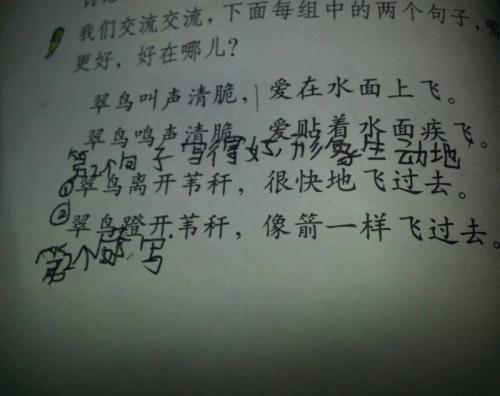 我们交流交流，下面每组中的两个句子，哪
更好，好在哪儿？
翠鸟叫声清脆，爱在水面上飞。
翠鸟鸣声清脆，爱贴着水面疾飞。
第2个句子写得好，形象生动地
①翠鸟离开苇秆，很快地飞过去。
②翠鸟蹬开苇秆，像箭一样飞过去。
第2个 写